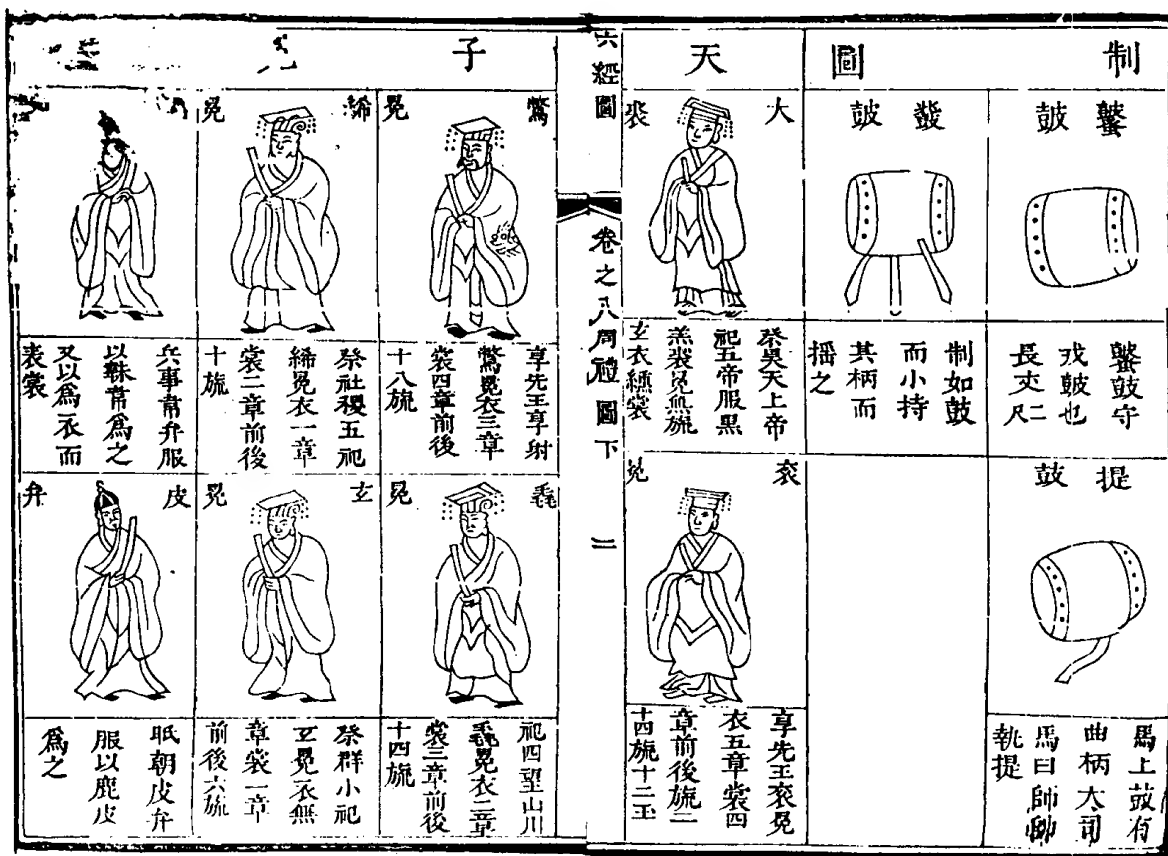 制圖
鼜皷
鼜鼓守
戎皷也
長丈二
尺
提鼓
馬上鼓有
曲柄大司
馬曰師帥
執提
鼗皷
制如鼓
而小持
其柄而
揺之
天
大裘
祭昊天上帝
祀五帝服黒
羔裘冕無旒
玄衣纁裳
衮冕
享先王衮冕
衣五章裳四
章前後旒二
十四旒十二玉
六經圖
卷之八周禮圖下
二
子
鷩冕
享先王享射
鷩冕衣三章
裳四章前後
十八旒
毳冕
祀四望山川
毳冕衣二章
裳三章前後
十四旒
絺冕
祭社稷五祀
絺冕衣一章
裳二章前後
十旒
玄冕
祭群小祀
玄冕衣無
章裳一章
前後六旒
兵事韋弁服
以韎韋爲之
又以爲衣而
裳
皮弁
眡朝皮弁
服以鹿皮
爲之